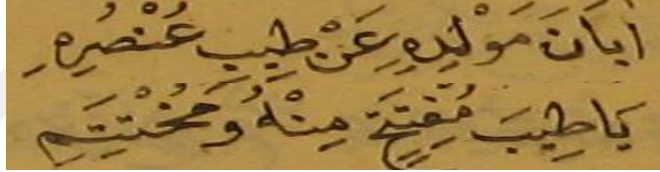 ابَانَ مَوْلِدِهِ عَنْ طِيبِ عُنْصُرِهِ
يَاطِيبَ مُفْتَتَحٍ مِنْهُ وَمُخْتَتَمِ